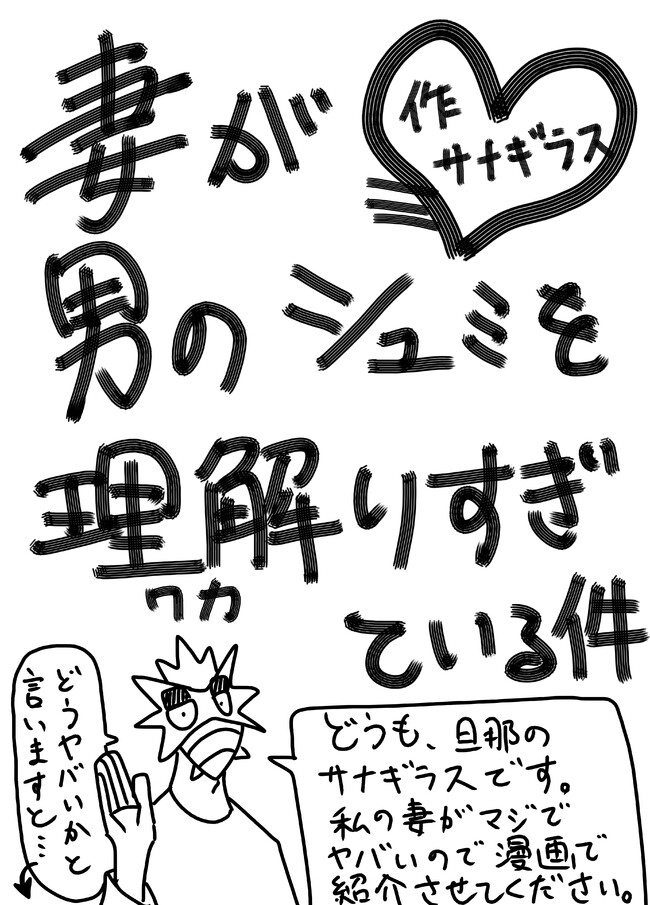 妻が
作
サナギラス
男のシュミを
理解りすぎ
ワカ
ている件
どうも、旦那の
サナギラスです。
私の妻がマジで
ヤバいので漫画で
紹介させてください。
どうヤバいかと
言いますと…